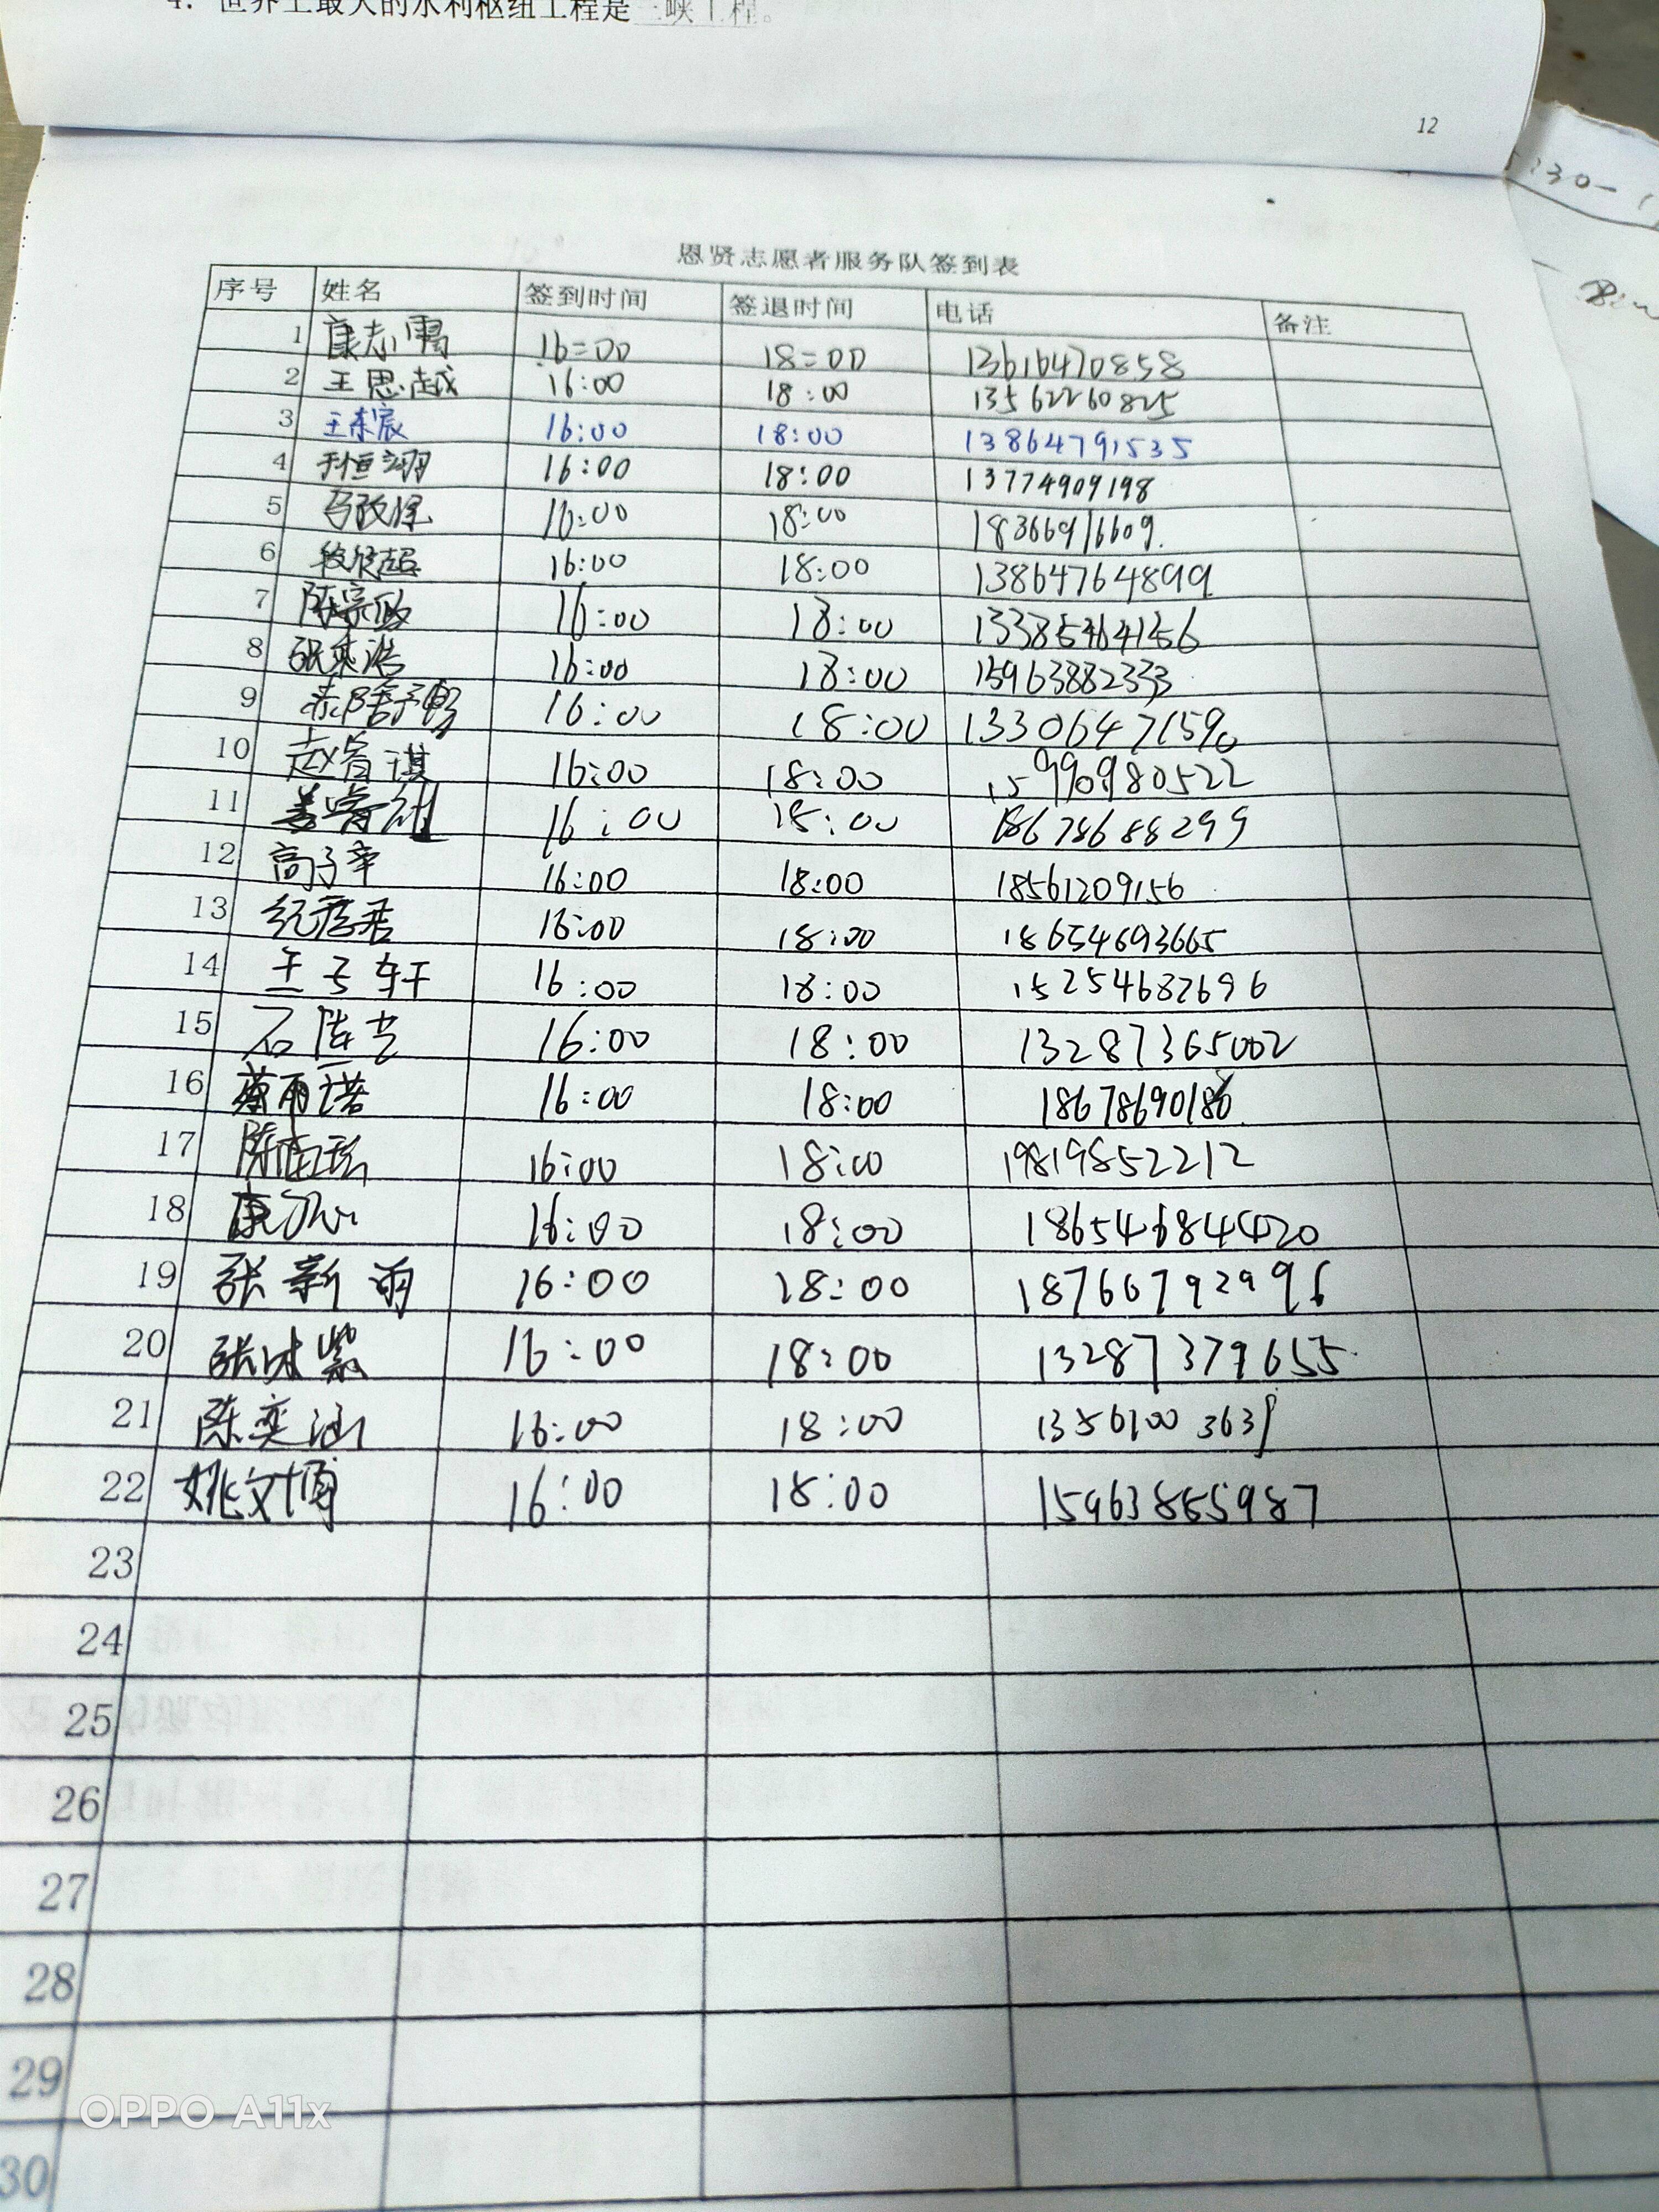 4. 世界上最大的水利枢纽工程是三峡工程。
12
恩贤志愿者服务队签到表
序号 姓名 签到时间 签退时间 电话 备注
1 康志 16:00 18:00 13616470858
2 王思越 16:00 18:00 13562260825
3 王东宸 16:00 18:00 13864791535
4 恒翊 16:00 18:00 13774909198
5 马政 16:00 18:00 18366916609.
6 16:00 18:00 13864764899
7 陈宗 16:00 18:00
8 张奕浩 16:00 18:00 15963882333
9 16:00 18:00 13306471590
10 赵睿淇 16:00 18:00 15990980522
11 姜睿 16:00 18:00 18678688299
12 高子幸 16:00 18:00 18561209156
13 纪 16:00 18:00 18654693665
14 王子轩 16:00 18:00 15254682696
15 石 16:00 18:00 13287365002
16 蔡雨诺 16:00 18:00
17 陈 16:00 18:00 19819852212
18 康 16:00 18:00 18654684420
19 张新雨 16:00 18:00 18766792996
20 张 紫 16:00 18:00 13287379655
21 陈奕涵 16:00 18:00 13561003639
22 姚文博 16:00 18:00 15963855987
23
24
25
26
27
28
29
30
OPPO A11x